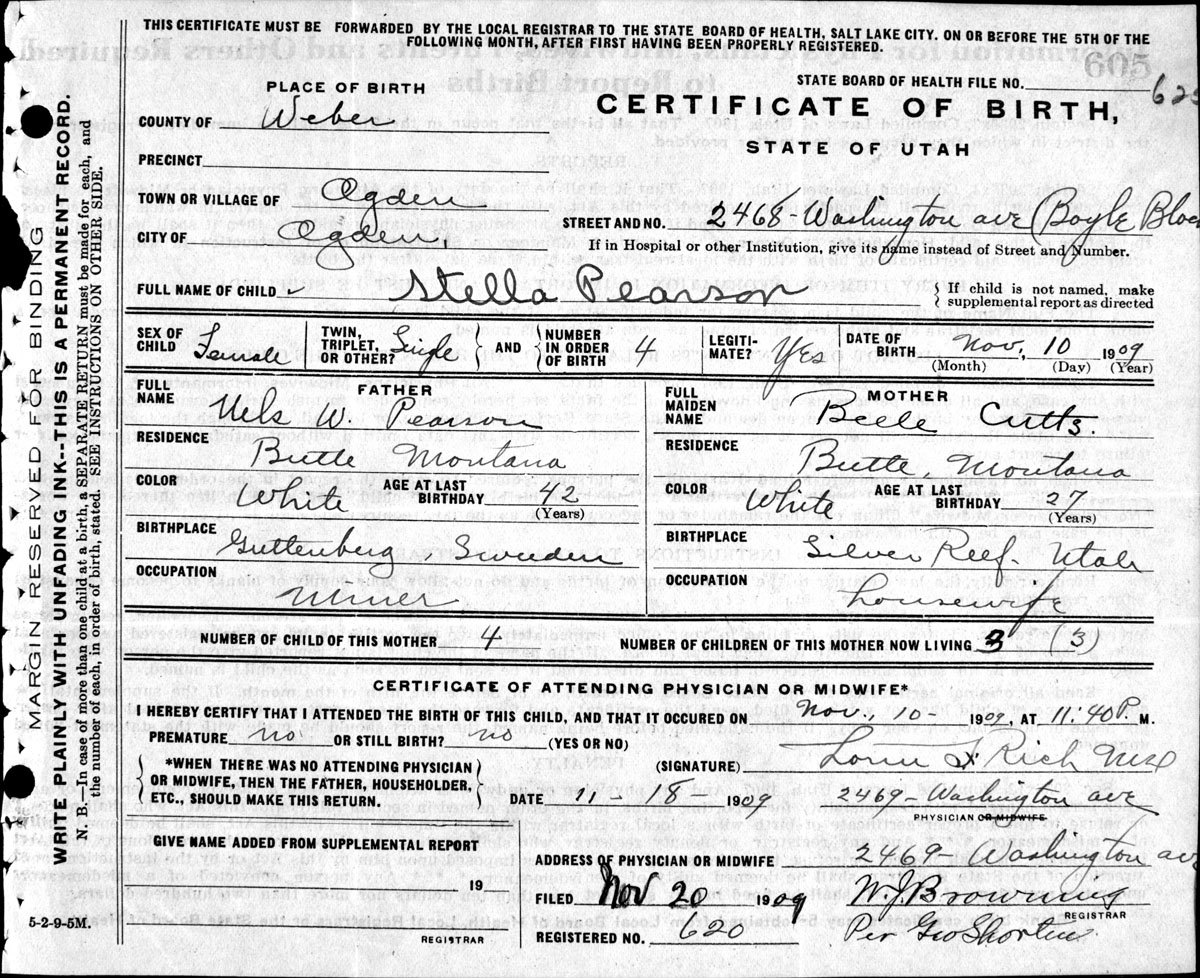 THIS CERTIFICATE MUST BE FORWARDED BY THE LOCAL REGISTRAR TO THE STATE BOARD OF HEALTH, SALT LAKE CITY. ON OR BEFORE THE 5TH OF THE
FOLLOWING MONTH, AFTER FIRST HAVING BEEN PROPERLY REGISTERED.
605
STATE BOARD OF HEALTH FILE NO.
PLACE OF BIRTH
CERTIFICATE OF BIRTH,
STATE OF UTAH
COUNTY OF Weber
PRECINCT
TOWN OR VILLAGE OF Ogden
STREET AND NO. 2468 - Washington ave (Boyle Bloc
CITY OF Ogden,
If in Hospital or other Institution, give its name instead of Street and Number.
FULL NAME OF CHILD Stella Pearson
If child is not named, make supplemental report as directed
SEX OF CHILD Female TWIN, TRIPLET, OR OTHER? Single AND NUMBER IN ORDER OF BIRTH 4 LEGITIMATE? Yes DATE OF BIRTH Nov, 10 1909
(Month) (Day) (Year)
FATHER
FULL NAME Nels W. Pearson
RESIDENCE
Butte Montana
COLOR White AGE AT LAST BIRTHDAY 42
(Years)
BIRTHPLACE
Guttenberg Sweden
OCCUPATION
Miner
MOTHER
FULL MAIDEN NAME Belle Cutts.
RESIDENCE
Butte, Montana
COLOR White AGE AT LAST BIRTHDAY 27
(Years)
BIRTHPLACE
Silver Reef. Utah
OCCUPATION
housewife
NUMBER OF CHILD OF THIS MOTHER 4 NUMBER OF CHILDREN OF THIS MOTHER NOW LIVING 3 (3)
CERTIFICATE OF ATTENDING PHYSICIAN OR MIDWIFE*
I HEREBY CERTIFY THAT I ATTENDED THE BIRTH OF THIS CHILD, AND THAT IT OCCURED ON Nov., 10- 1909, AT 11:40 P. M.
PREMATURE no OR STILL BIRTH? no (YES OR NO)
*WHEN THERE WAS NO ATTENDING PHYSICIAN OR MIDWIFE, THEN THE FATHER, HOUSEHOLDER, ETC., SHOULD MAKE THIS RETURN.
(SIGNATURE) Rich
DATE 11 - 18 1909 2469 - Washington ave
PHYSICIAN OR MIDWIFE
GIVE NAME ADDED FROM SUPPLEMENTAL REPORT
19
REGISTRAR
ADDRESS OF PHYSICIAN OR MIDWIFE 2469 Washington av
FILED Nov 20 1909 W. J. Browning
REGISTRAR
REGISTERED NO. 620 Per Geo Shorten
5-2-9-5M.
MARGIN RESERVED FOR BINDING
WRITE PLAINLY WITH UNFADING INK--THIS A PERMANENT RECORD.
N. B.—In case of more than one child at a birth, a SEPARATE RETURN must be made for each, and
the number of each, in order of birth, stated. SEE INSTRUCTIONS ON OTHER SIDE.